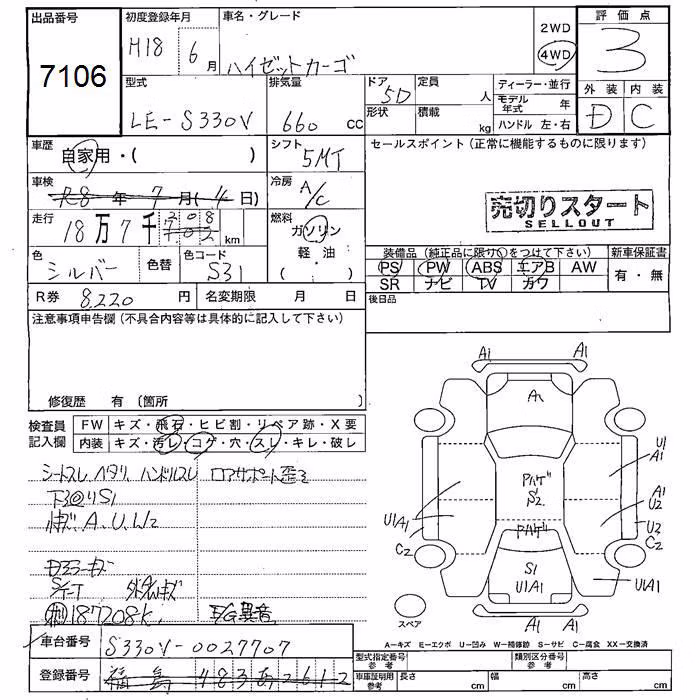 出品番号
7106
初度登録年月
H18 6月
車名・グレード
ハイゼットカーゴ
2WD
4WD
評価点
3
外装 内装
D C
型式
LE-S330V
排気量
660 cc
ドア
5D
形状
定員
人
積載
kg
ディーラー・並行
モデル年式 年
ハンドル 左・右
車歴
自家用・( )
シフト
5MT
セールスポイント(正常に機能するものに限ります)
売切りスタート
SELLOUT
車検
R8年7月(4日)
冷房
A/C
走行
18万7千208km
燃料
ガソリン
軽・油
( )
色
シルバー
色替
色コード
S31
装備品(純正品に限り○をつけて下さい)
PS PW ABS エアB AW
SR ナビ TV カワ
新車保証書
有・無
後日品
R券 8220円
名変期限 月 日
注意事項申告欄(不具合内容等は具体的に記入して下さい)
修復歴 有(箇所 )
検査員記入欄
FW キズ・飛石・ヒビ割・リペア跡・X要
内装 キズ・汚レ・コゲ・穴・スレ・キレ・破レ
シートスレ、ヘタリ、ハンドルスレ
ロアサポート歪ミ
下回りS1
A、U、W2
187208K.
E/G異音
車台番号 S330V-0027707
登録番号 福島 483 あ 2612
A1 A1
A1
U1
A1
A1
U2
U2
C2
U1A1
C2
ハゲ
S2
ハゲ
S1
U1A1
U1A1
A1 A1
スペア
A-キズ E-エクボ U-凹み W-補修跡 S-サビ C-腐食 XX-交換済
型式指定番号参考
類別区分番号参考
車庫証明用参考
長さ cm
幅 cm
高さ cm